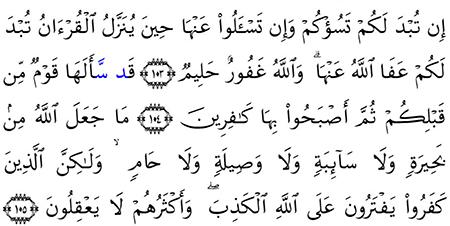 إِن تُبْدَ لَكُمْ تَسُؤْكُمْ وَإِن تَسْـَٔلُوا۟ عَنْهَا حِينَ يُنَزَّلُ ٱلْقُرْءَانُ تُبْدَ
لَكُمْ عَفَا ٱللَّهُ عَنْهَا ۗ وَٱللَّهُ غَفُورٌ حَلِيمٌ ﴿١٠٣﴾ قَد سَّأَلَهَا قَوْمٌ مِّن
قَبْلِكُمْ ثُمَّ أَصْبَحُوا۟ بِهَا كَـٰفِرِينَ ﴿١٠٤﴾ مَا جَعَلَ ٱللَّهُ مِنۢ
بَحِيرَةٍ وَلَا سَآئِبَةٍ وَلَا وَصِيلَةٍ وَلَا حَامٍ ۙ وَلَـٰكِنَّ ٱلَّذِينَ
كَفَرُوا۟ يَفْتَرُونَ عَلَى ٱللَّهِ ٱلْكَذِبَ ۖ وَأَكْثَرُهُمْ لَا يَعْقِلُونَ ﴿١٠٥﴾